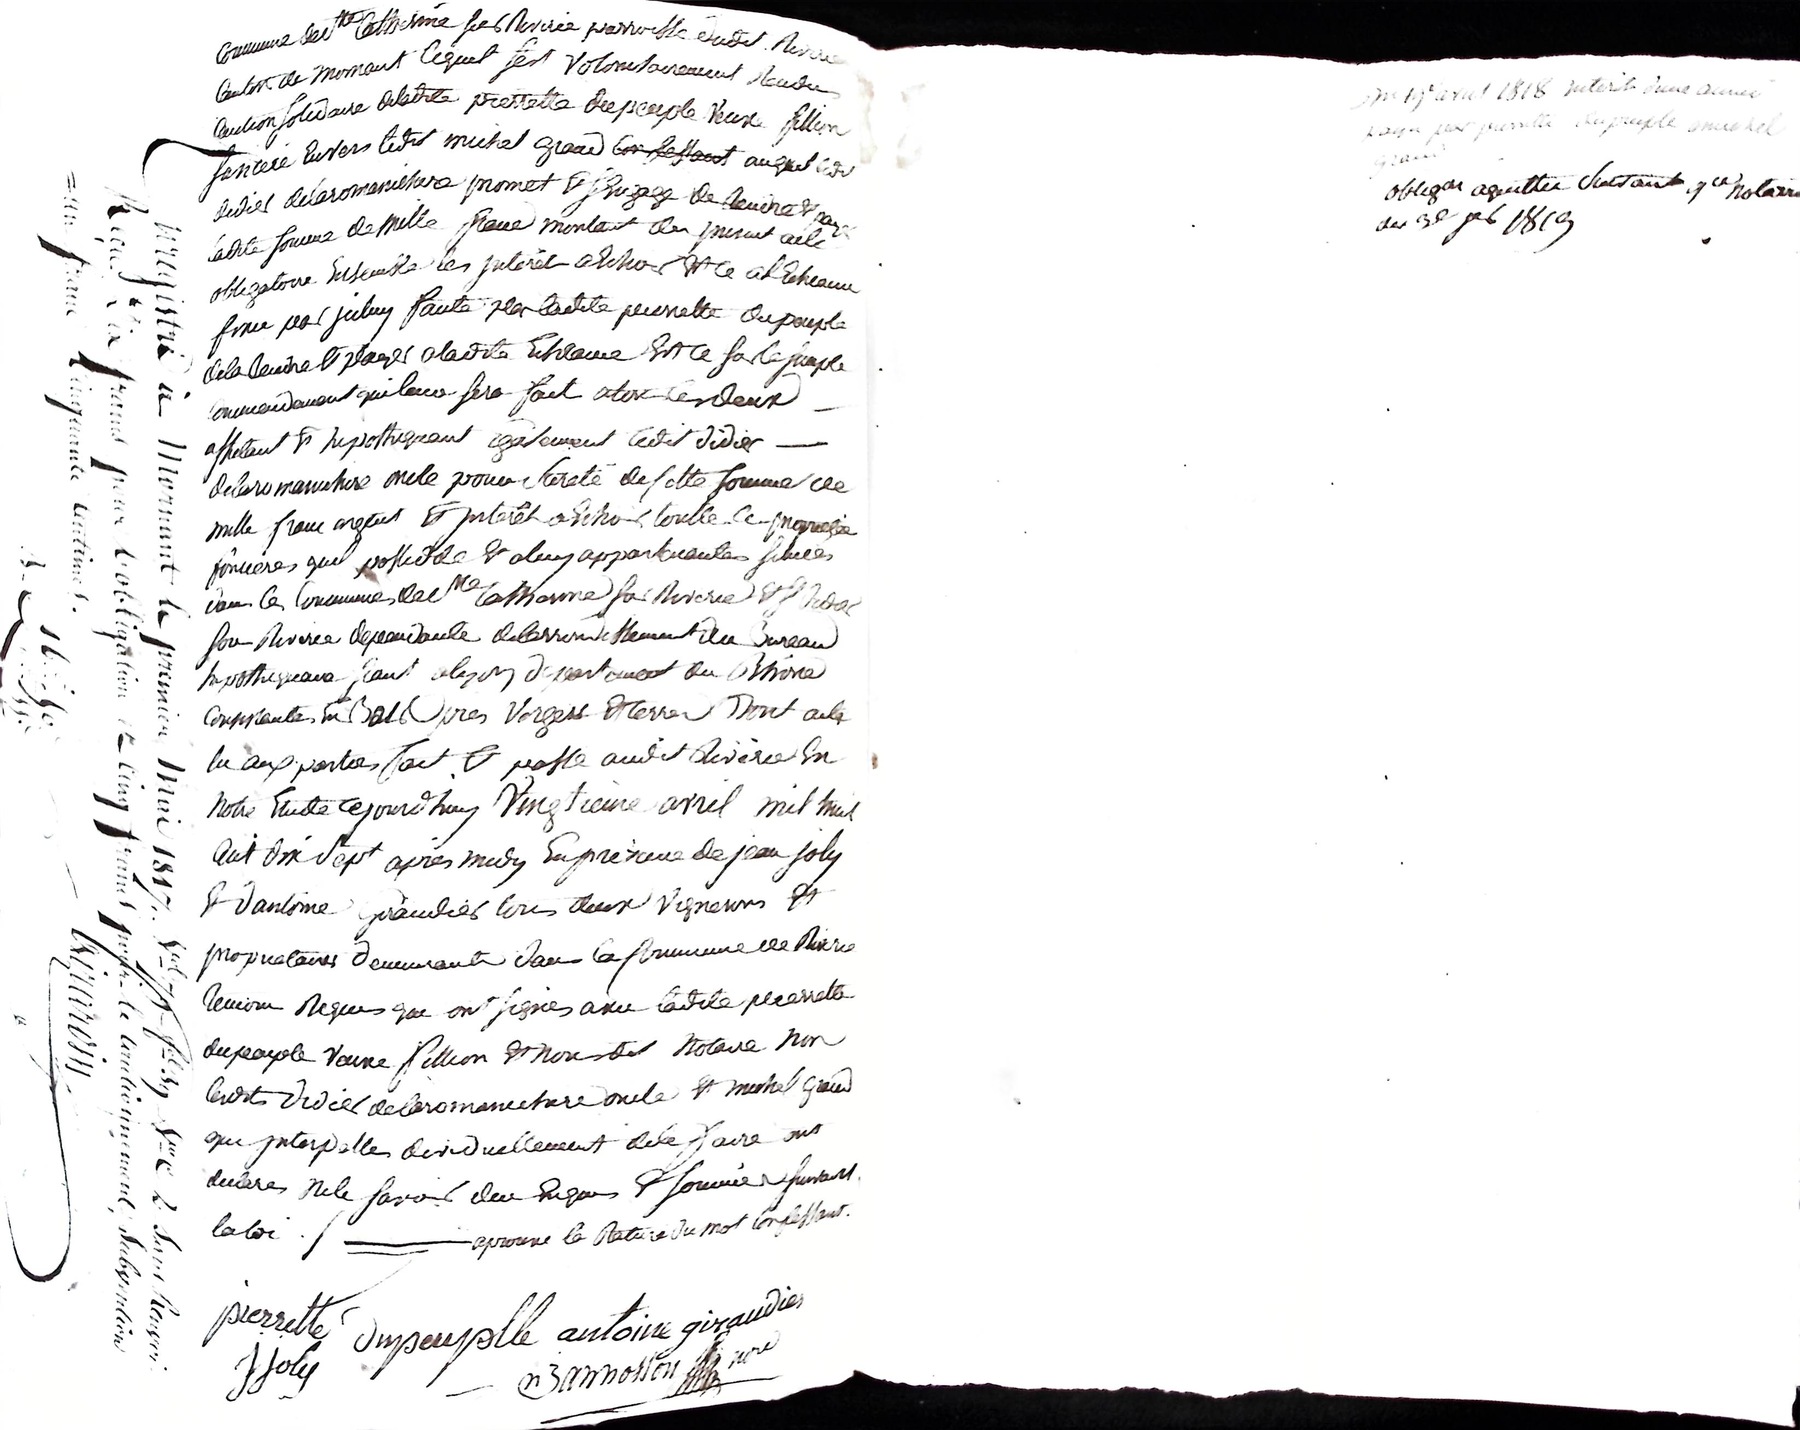 commune de Ste Catherine sur Riverie parroisse dudit Riverie
canton de Mornant lequel sest volontairement rendu
caution solidaire de ladite pierrette dupeuple veuve fillion
envers ledit michel grand confessant auquel ledit
didier delaromanichere promet et sengage de rendre et payer
ladite somme de mille franc montant du present acte
obligatoire Ensemble les jnteret a Echoir Et ce a lEcheance
fixée par jceluy faute par ladite pierrette dupeuple
de la rendre Et payer a ladite Echeance Et ce sur le simple
commandement qui leur sera fait a tous les deux
affectant et hipothequant également ledit didier
delaromanichere oncle pour sureté de cette somme de
mille franc argent Et jnterêt a Echoir toutte les proprietée
foncieres quil possedde Et a luy appartenantes situées
dans les Communes de Ste Catherine sur Riverie Et St Didier
sous Riverie dependante de larrondissement du Bureau
hypothequaire seant a lyon departement du Rhône
consistantes En Bois pres vergers Et terres Dont acte
lu aux parties fait Et passé audit Riverie En
notre Etude cejourdhuy vingtieme avril mil huit
Cent dix Sept apres midy En presence de jean joly
Et dantoine giraudier tous deux vignerons Et
proprietaires demeurants dans la Commune de Riverie
temoins Requis qui ont signés avec ladite pierrette
dupeuple veuve fillion Et nous dit Notaire non
lesdits Didier delaromanichere oncle Et michel grand
qui jnterpellés dividuellement de le faire ont
declarés ne le savoir deu Enquis Et sommés suivant
la loi . aprouvé la Rature du mot confessant.
pierrette dupeuplle antoine giraudier
J Joly
nre
Enregistré à Mornant le premier Mai 1817.
Reçu dix francs pour l'obligation et cinq francs pour le cautionnement, subvention
un franc cinquante centimes.
avril 1818 interit dune année
payé par pierrette dupeuple michel
grand
obligon aquittée suivant qce notariée
du 3e 1819